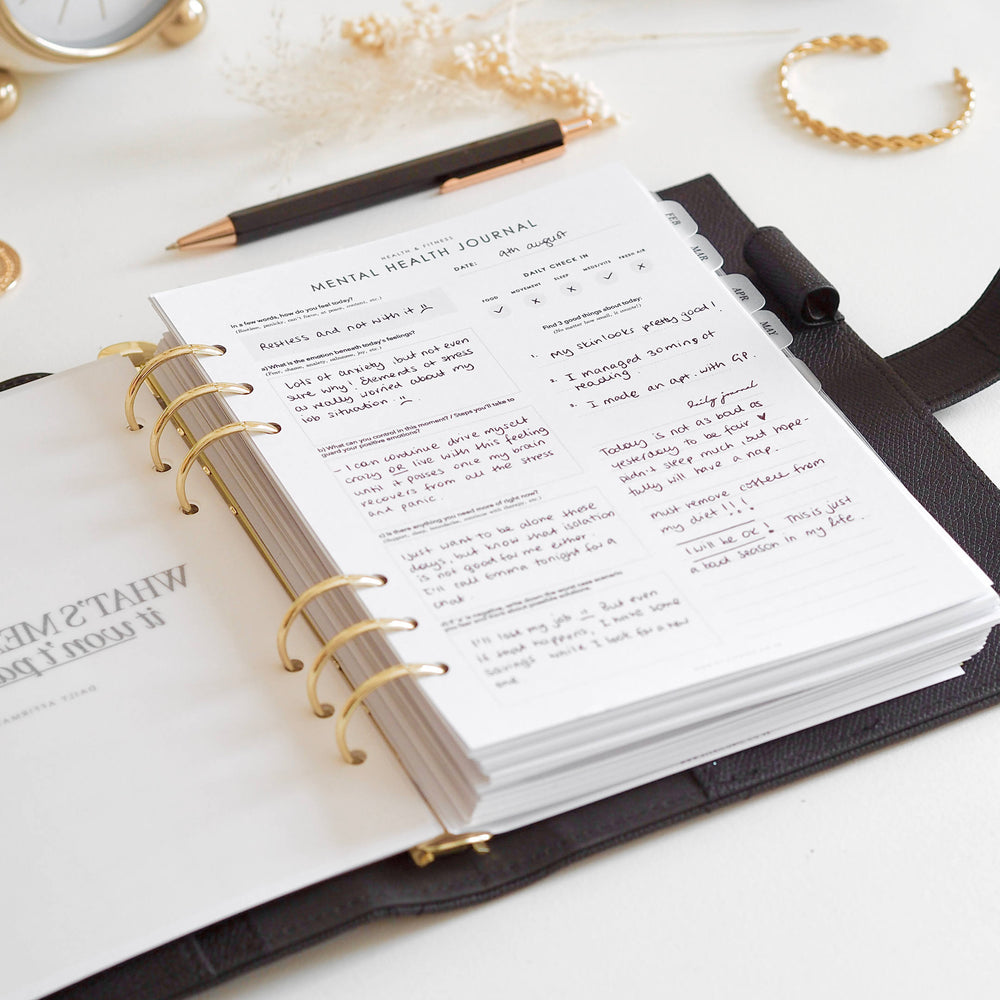 HEALTH & FITNESS
MENTAL HEALTH JOURNAL
DATE: 9th august
In a few words, how do you feel today?
Restless and not with it
a) What is the emotion beneath today's feelings?
Lots of anxiety, but not even
sure why! Elements of stress
as really worried about my
job situation.
b) What can you control in this moment? / Steps you'll take to
guard your positive emotions?
- I can continue drive myself
crazy OR live with this feeling
until it passes once my brain
recovers from all the stress
and panic.
c) Is there anything you need more of right now?
I just want to be alone these
days, but know that isolation
is not good for me either.
I'll call Emma tonight for a
chat.
negative, write down the worst case scenario
I'll lost my job But even
if that happens, I have some
savings while I look for a new
one
DAILY CHECK IN
FOOD MOVEMENT SLEEP MEDS/VITS FRESH AIR
✓ × × ✓ ×
Find 3 good things about today:
(No matter how small, it counts!)
1. My skin looks pretty good!
2. I managed 30min of
reading.
3. I made an apt. with GP.
Daily journal
Today is not as bad as
yesterday to be fair ♥
Didn't sleep much, but hope-
fully will have a nap.
must remove coffee from
my diet!!!
I will be ok! This is just
a bad season in my life.
FEB
MAR
APR
MAY
WHAT'S ME
it won't pa
DAILY AFFIRMA